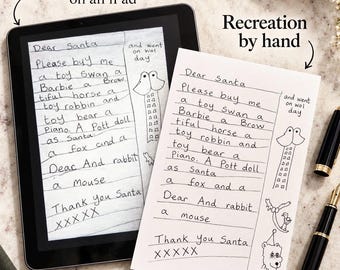 on an iPad
Recreation
by hand
Dear Santa
Please buy me
a toy Swan a
Barbie a Brow
tiful horse a
toy robbin and
toy bear a
Piano. A Pott doll
as Santa
a fox and a
Dear And rabbit
a mouse
Thank you Santa
xxxxx
and went
on wol
day
Dear Santa
Please buy me
a toy Swan a
Barbie a Brow
tiful horse a
toy robbin and
toy bear a
Piano. A Pott doll
as Santa
a fox and a
Dear And rabbit
a mouse
Thank you Santa
XXXXX
and went
on wol
day